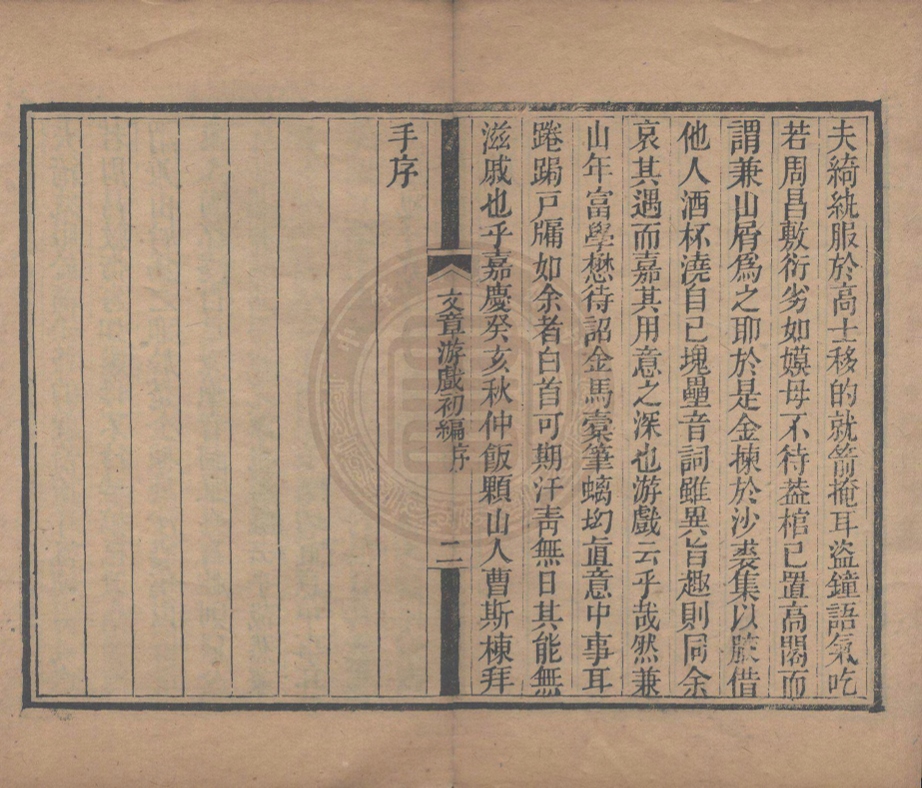 夫綺紈服於高士移的就箭掩耳盜鐘語氣吃
若周昌敷衍劣如嫫母不待葢棺已置高閣而
謂兼山屑爲之耶於是金揀於沙裘集以腋借
他人酒杯澆自己塊壘音詞雖異旨趣則同余
哀其遇而嘉其用意之深也游戲云乎哉然兼
山年富學懋待詔金馬槖筆螭㘭直意中事耳
踡跼戸牖如余者白首可期汗靑無日其能無
滋戚也乎嘉慶癸亥秋仲飯顆山人曹斯棟拜
文章游戲初編 序 二
手序